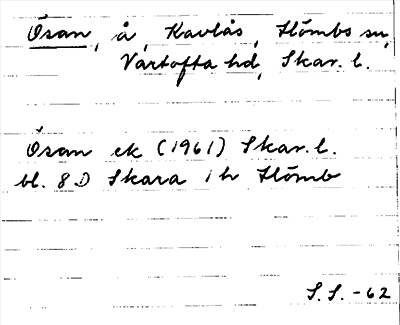 Ösan, å, Kavlås, Hömbs sn,
Vartofta hd, Skar. l.
Ösan ek (1961) Skar. l.
bl. 8D Skara i h Hömb
S.S. -62